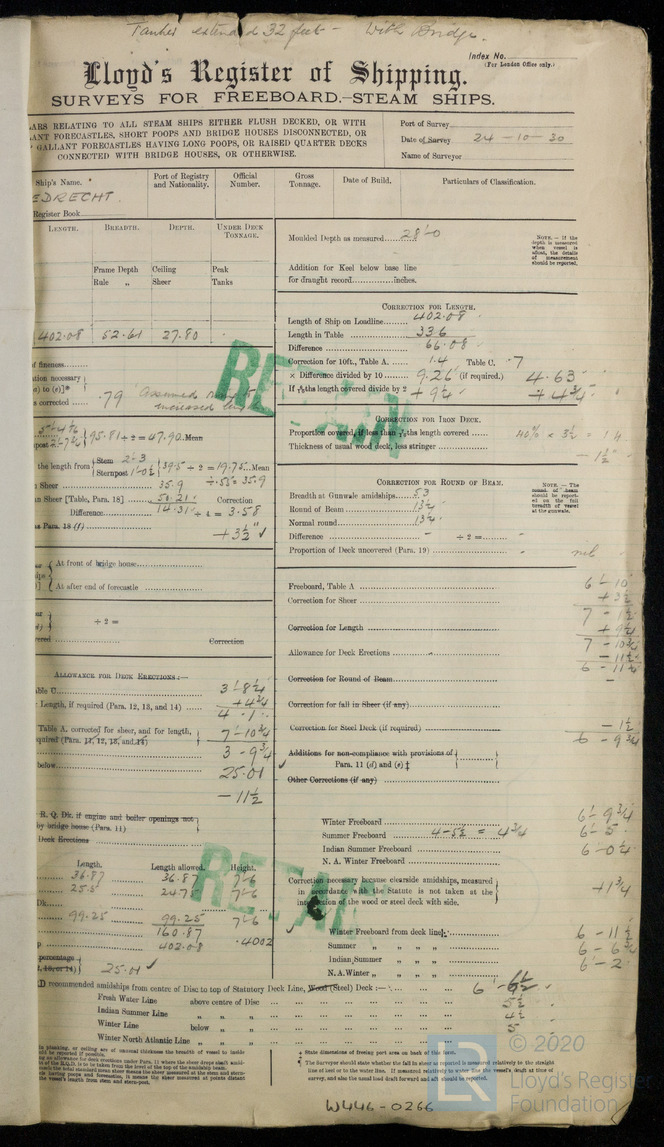 Tanker extended 32 feet - With Bridge.
Index No.
(For London Office only.)
Lloyd's Register of Shipping.
SURVEYS FOR FREEBOARD.-STEAM SHIPS.
ARS RELATING TO ALL STEAM SHIPS EITHER FLUSH DECKED, OR WITH
ANT FORECASTLES, SHORT POOPS AND BRIDGE HOUSES DISCONNECTED, OR
GALLANT FORECASTLES HAVING LONG POOPS, OR RAISED QUARTER DECKS
CONNECTED WITH BRIDGE HOUSES, OR OTHERWISE.
Port of Survey
Date of Survey 24-10-30
Name of Surveyor
Ship's Name. *
Port of Registry and Nationality.
Official Number.
Gross Tonnage.
Date of Build.
Particulars of Classification.
EDRECHT.
Register Book
LENGTH. BREADTH. DEPTH. UNDER DECK TONNAGE.
Frame Depth Ceiling Peak
Rule " Sheer Tanks
402.08 52.61 27.80
Moulded Depth as measured 28'-0
NOTE.—If the depth is measured when vessel is afloat, the details of measurement should be reported.
Addition for Keel below base line
for draught record inches.
CORRECTION FOR LENGTH.
Length of Ship on Loadline 402.08
Length in Table 336
Difference 66.08
Correction for 10ft., Table A. 1.4 Table C. .7
× Difference divided by 10 9.26 (if required.) 4.63
+ 9¼ + 4¾
of fineness
corrected .79
95.81 ÷ 2 = 47.90 Mean
the length from Stem 2'-3
Sternpost 39.5 ÷ 2 = 19.75 Mean
Sheer 35.9
n Sheer [Table, Para. 18] 50.21
Correction
Difference 14.31 ÷ 4 = 3.58
Para. 18 (f) +3½"
CORRECTION FOR IRON DECK.
Thickness of usual wood deck, less stringer
40% × 3½ = 1.4
- 1½
CORRECTION FOR ROUND OF BEAM.
Breadth at Gunwale amidships 53
Round of Beam 13¼
Normal round 13¼
Difference - ÷ 2 = -
Proportion of Deck uncovered (Para. 19) nil
NOTE.—The round of beam should be reported on the full breadth of vessel at the gunwale.
At front of bridge house
At after end of forecastle
÷ 2 =
Correction
Freeboard, Table A 6'-10
Correction for Sheer +3½
7 - 1½
Correction for Length + 9¼
7 - 10¾
Allowance for Deck Erections - 11½
6 - 11¼
Correction for Round of Beam -
Correction for fall in Sheer (if any)
Correction for Steel Deck (if required) - 1½
6 - 9¾
Additions for non-compliance with provisions of
Para. 11 (d) and (e) ‡
Other Corrections (if any)
ALLOWANCE FOR DECK ERECTIONS:—
ble C 3'-8¼
Length, if required (Para. 12, 13, and 14) +4¾
4 - 1
Table A. corrected for sheer, and for length,
quired (Para. 11, 12, 13, and 14) 7'-10¾
3 - 9¾
below 25.01
- 11½
R. Q. Dk. if engine and boiler openings not
by bridge house (Para. 11)
Deck Erections
Length. Length allowed. Height.
36.87 36.87 7'-6
25.5 24.75 7'-6
99.25 99.25 7'-6
160.87
402.08 .4002
percentage
25.01
Winter Freeboard 6'-9¾
Summer Freeboard 4-5½ = 4¾ 6'-5
Indian Summer Freeboard 6-0¼
N. A. Winter Freeboard
Correction necessary because clearside amidships, measured
in accordance with the Statute is not taken at the
intersection of the wood or steel deck with side. +1¾
Winter Freeboard from deck line 6 - 11½
Summer " " " " 6 - 6¾
Indian Summer " " " " 6'-2
N.A. Winter " " " "
D recommended amidships from centre of Disc to top of Statutory Deck Line, Wood (Steel) Deck :— 6 - 6½
Fresh Water Line above centre of Disc 5½
Indian Summer Line " " " 4½
Winter Line below " " 5
Winter North Atlantic Line " " "
State dimensions of freeing port area on back of this form.
The Surveyor should state whether the fall in sheer is reported is measured relatively to the straight
line of keel or to the water line. If measured relatively to water line the vessel's draft at time of
survey, and also the usual load draft forward and aft should be reported.
W446-0266
RETAIN
RETAIN
LR
© 2020
Lloyd's Register
Foundation